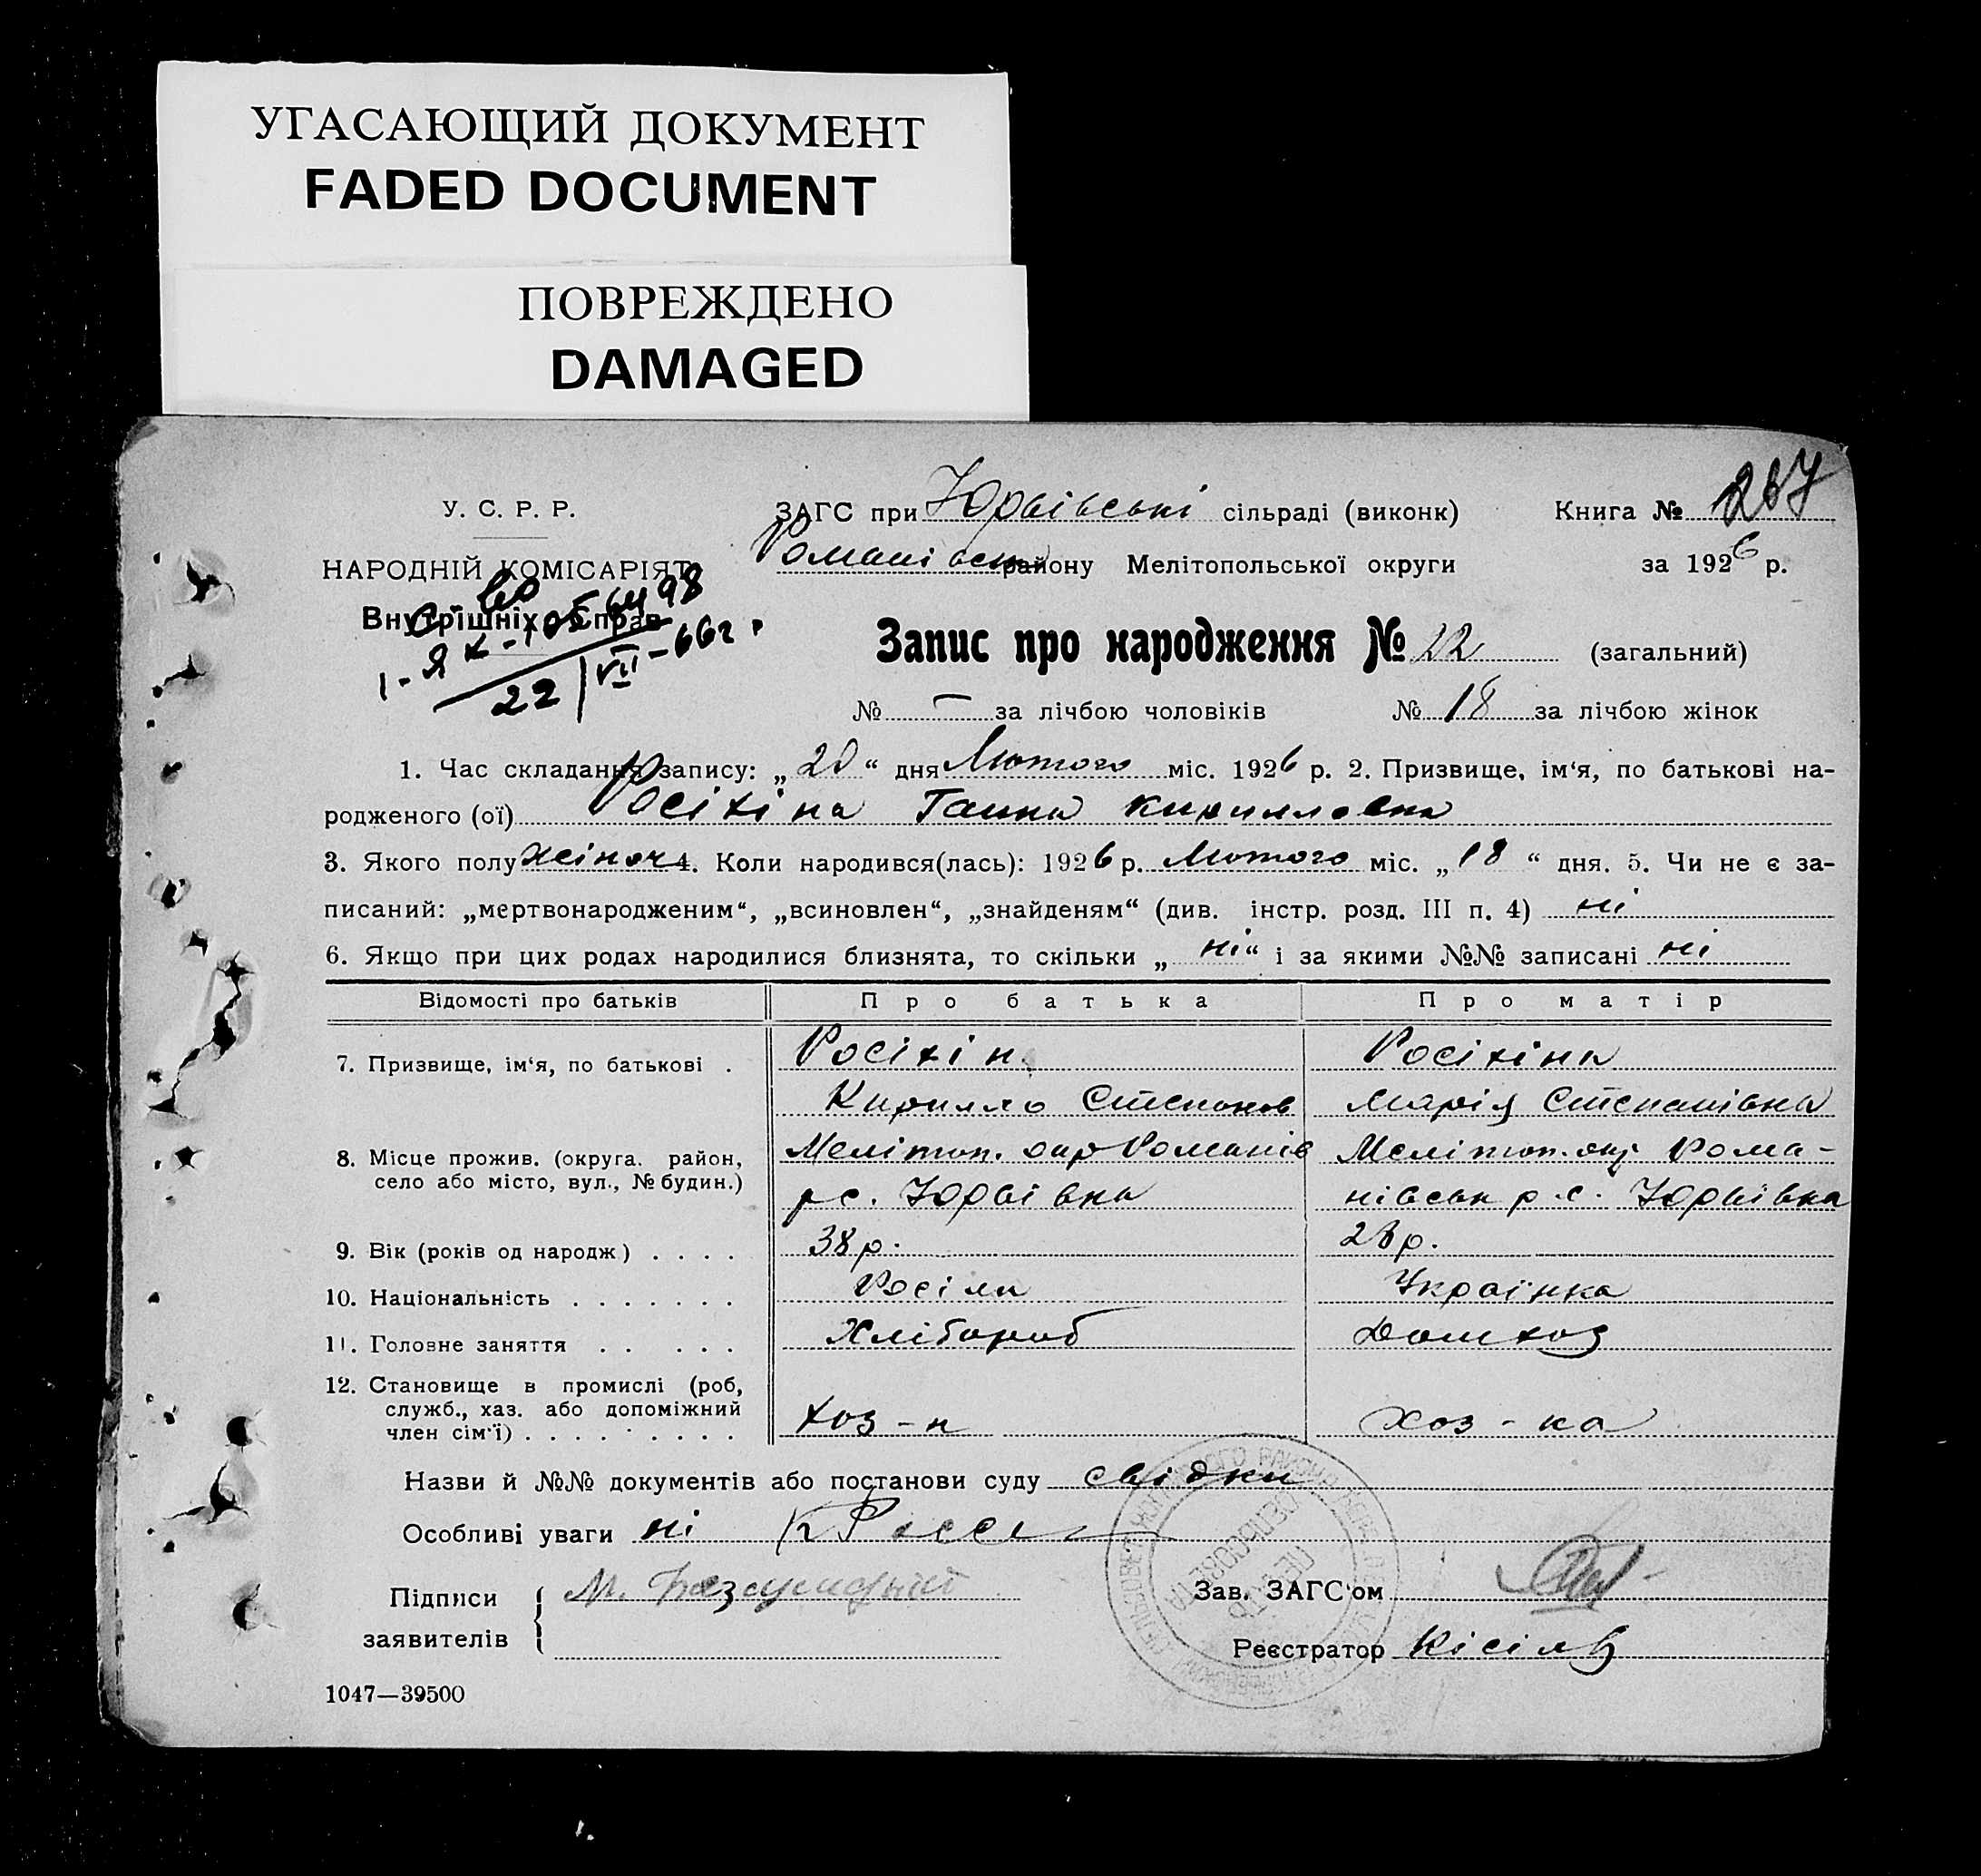 УГАСАЮЩИЙ ДОКУМЕНТ
FADED DOCUMENT
ПОВРЕЖДЕНО
DAMAGED
У. С. Р. Р.
НАРОДНІЙ КОМІСАРІЯТ
Внутрішніх Справ
22/VII-66г.
ЗАГС при Юрьівські сільраді (виконк) Книга № 267
Романівськ району Мелітопольської округи за 1926 р.
Запис про народження № 22 (загальний)
№ — за лічбою чоловіків № 18 за лічбою жінок
1. Час складання запису: „20“ дня Лютого міс. 1926 р. 2. Призвище, ім‘я, по батькові на-
родженого (ої) Росіхіна Ганна Кирилловна
3. Якого полу жіноч 4. Коли народився(лась): 1926 р. Лютого міс. „18“ дня. 5. Чи не є за-
писаний: „мертвонародженим“, „всиновлен“, „знайденям“ (див. інстр. розд. III п. 4) ні
6. Якщо при цих родах народилися близнята, то скільки „ні“ і за якими №№ записані ні
Відомості про батьків Про батька Про матір
7. Призвище, ім‘я, по батькові . Росіхін Росіхіна
Кирилло Степанов Марія Степанівна
8. Місце прожив. (округа. район, Меліт оп. окр Романів Мелітоп. окр. Рома-
село або місто, вул., № будин.) р с. Юрьівка нівськ р с. Юрьівка
9. Вік (років од народж) . . . . 38 р. 28 р.
10. Національність . . . . . . . Росіян Українка
11. Головне заняття . . . . . Хлібороб Домхоз
12. Становище в промислі (роб,
служб., хаз. або допоміжний
член сім‘ї) . . . . . . . . . хоз-н хоз-ка
Назви й №№ документів або постанови суду свідки
Особливі уваги ні
Підписи
заявителів
Зав. ЗАГС‘ом
Реєстратор Кісіль
1047—39500